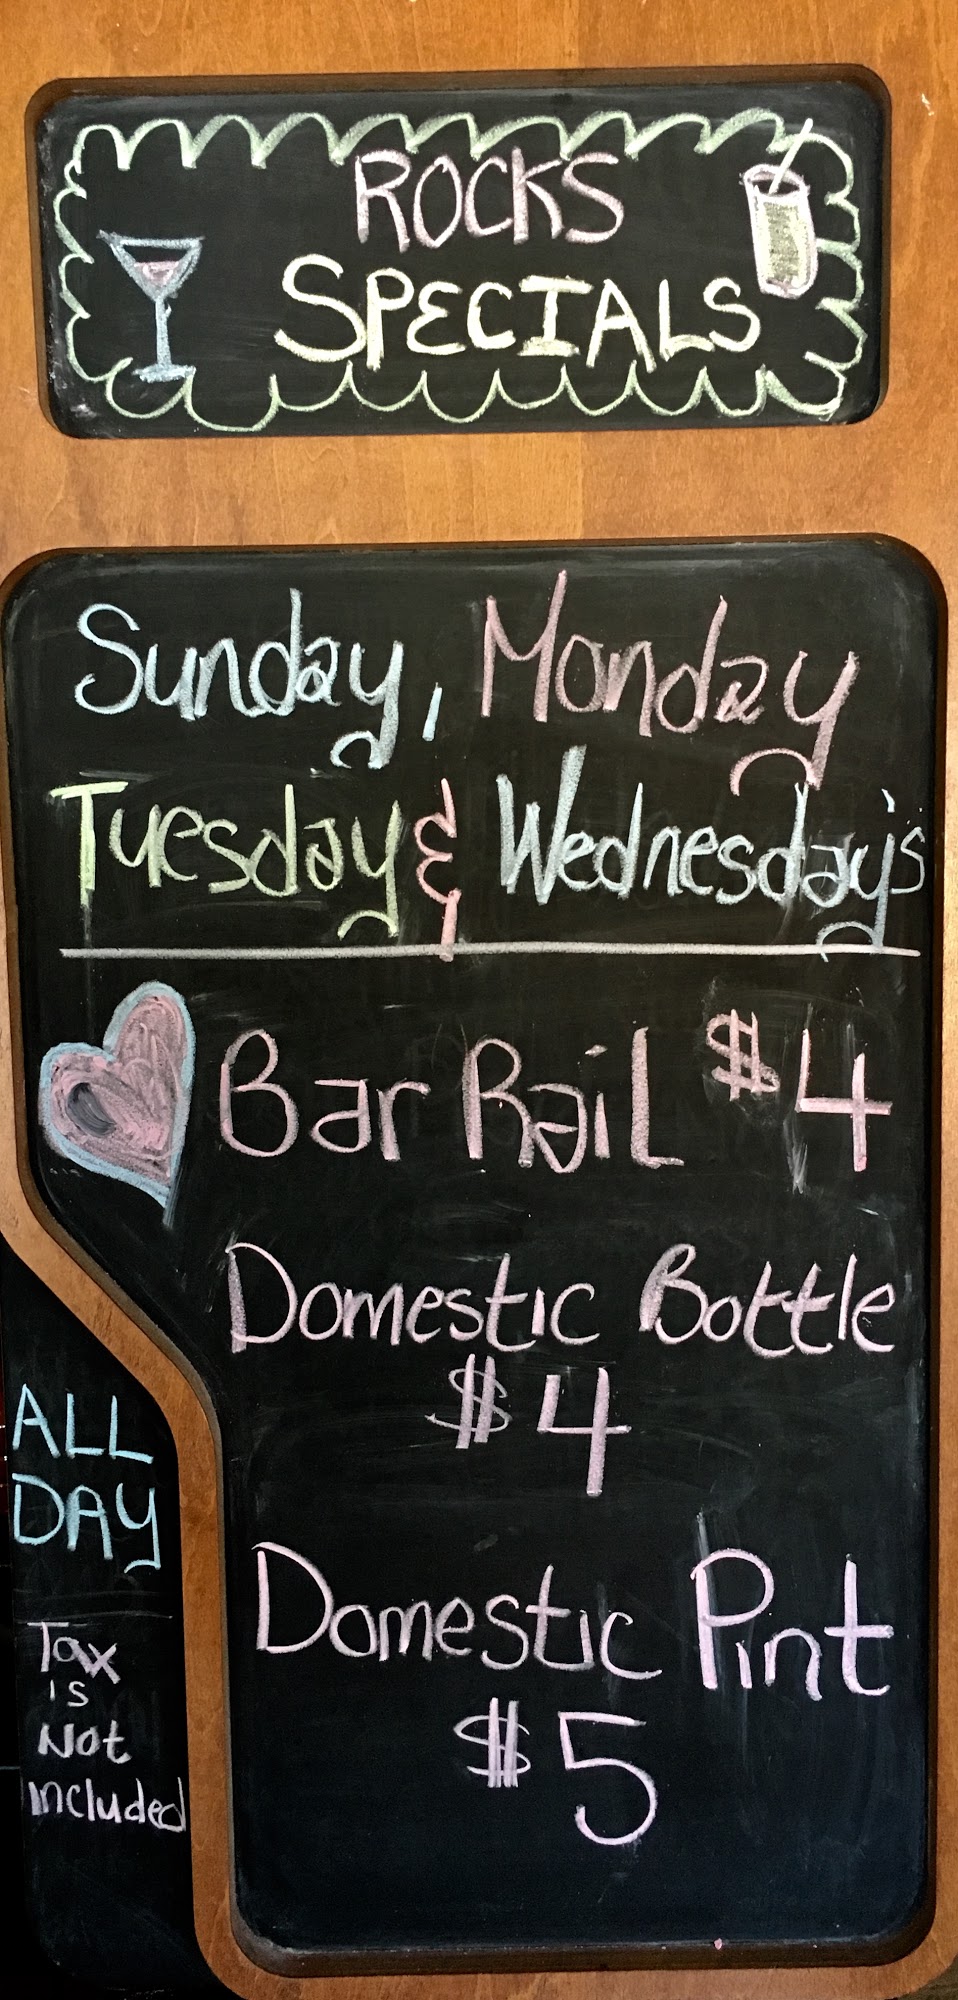 ROCKS
SPECIALS
Sunday, Monday
Tuesday & Wednesday's
Bar Rail $4
Domestic Bottle
$4
Domestic Pint
$5
ALL
DAY
Tax
is
Not
included